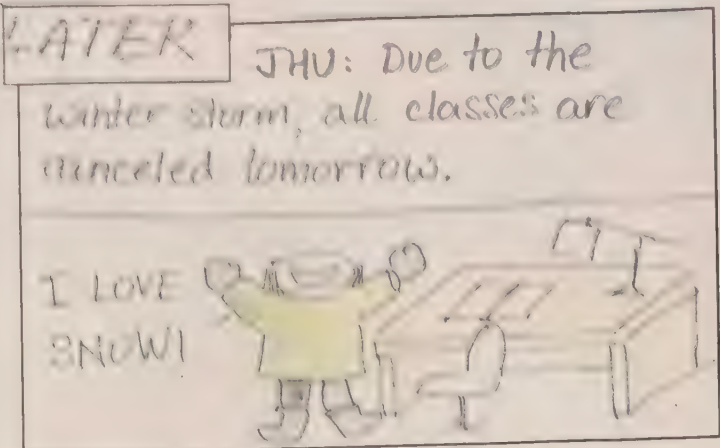 LATER
JHU: Due to the
winter storm, all classes are
canceled tomorrow.
I LOVE
SNOW!